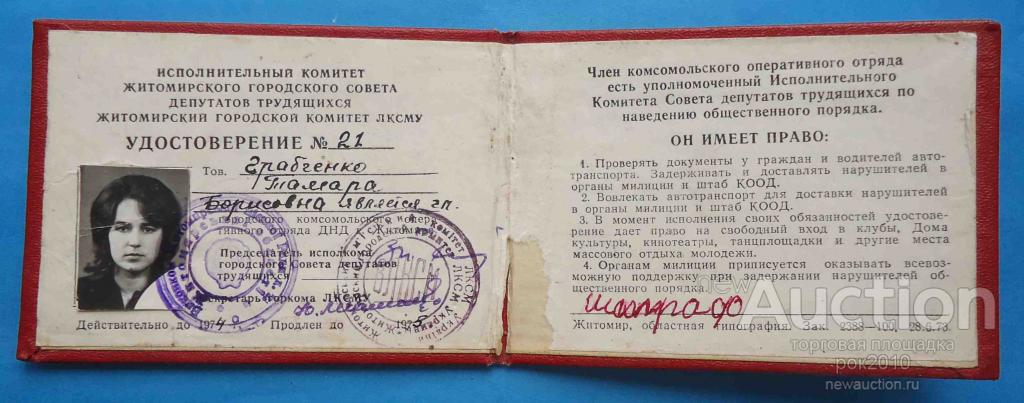 ИСПОЛНИТЕЛЬНЫЙ КОМИТЕТ
ЖИТОМИРСКОГО ГОРОДСКОГО СОВЕТА
ДЕПУТАТОВ ТРУДЯЩИХСЯ
ЖИТОМИРСКИЙ ГОРОДСКОЙ КОМИТЕТ ЛКСМУ
УДОСТОВЕРЕНИЕ № 21
Тов. Грабченко
Тамара
Борисовна является чл.
городского комсомольского опера-
тивного отряда ДНД г. Житомира
Председатель исполкома
городского Совета депутатов
трудящихся
Секретарь горкома ЛКСМУ
Действительно до 1974 Продлен до 1975
Член комсомольского оперативного отряда
есть уполномоченный Исполнительного
Комитета Совета депутатов трудящихся по
наведению общественного порядка.
ОН ИМЕЕТ ПРАВО:
1. Проверять документы у граждан и водителей авто-
транспорта. Задерживать и доставлять нарушителей в
органы милиции и штаб КООД.
2. Вовлекать автотранспорт для доставки нарушителей
в органы милиции и штаб КООД.
3. В момент исполнения своих обязанностей удостове-
рение дает право на свободный вход в клубы, Дома
культуры, кинотеатры, танцплощадки и другие места
массового отдыха молодежи.
4. Органам милиции приписуется оказывать всевоз-
можную поддержку при задержании нарушителей об-
щественного порядка.
Житомир, областная типография. Зак. 2388—400, 28.6.73.
new
Auction
торговая площадка
рок2010
newauction.ru